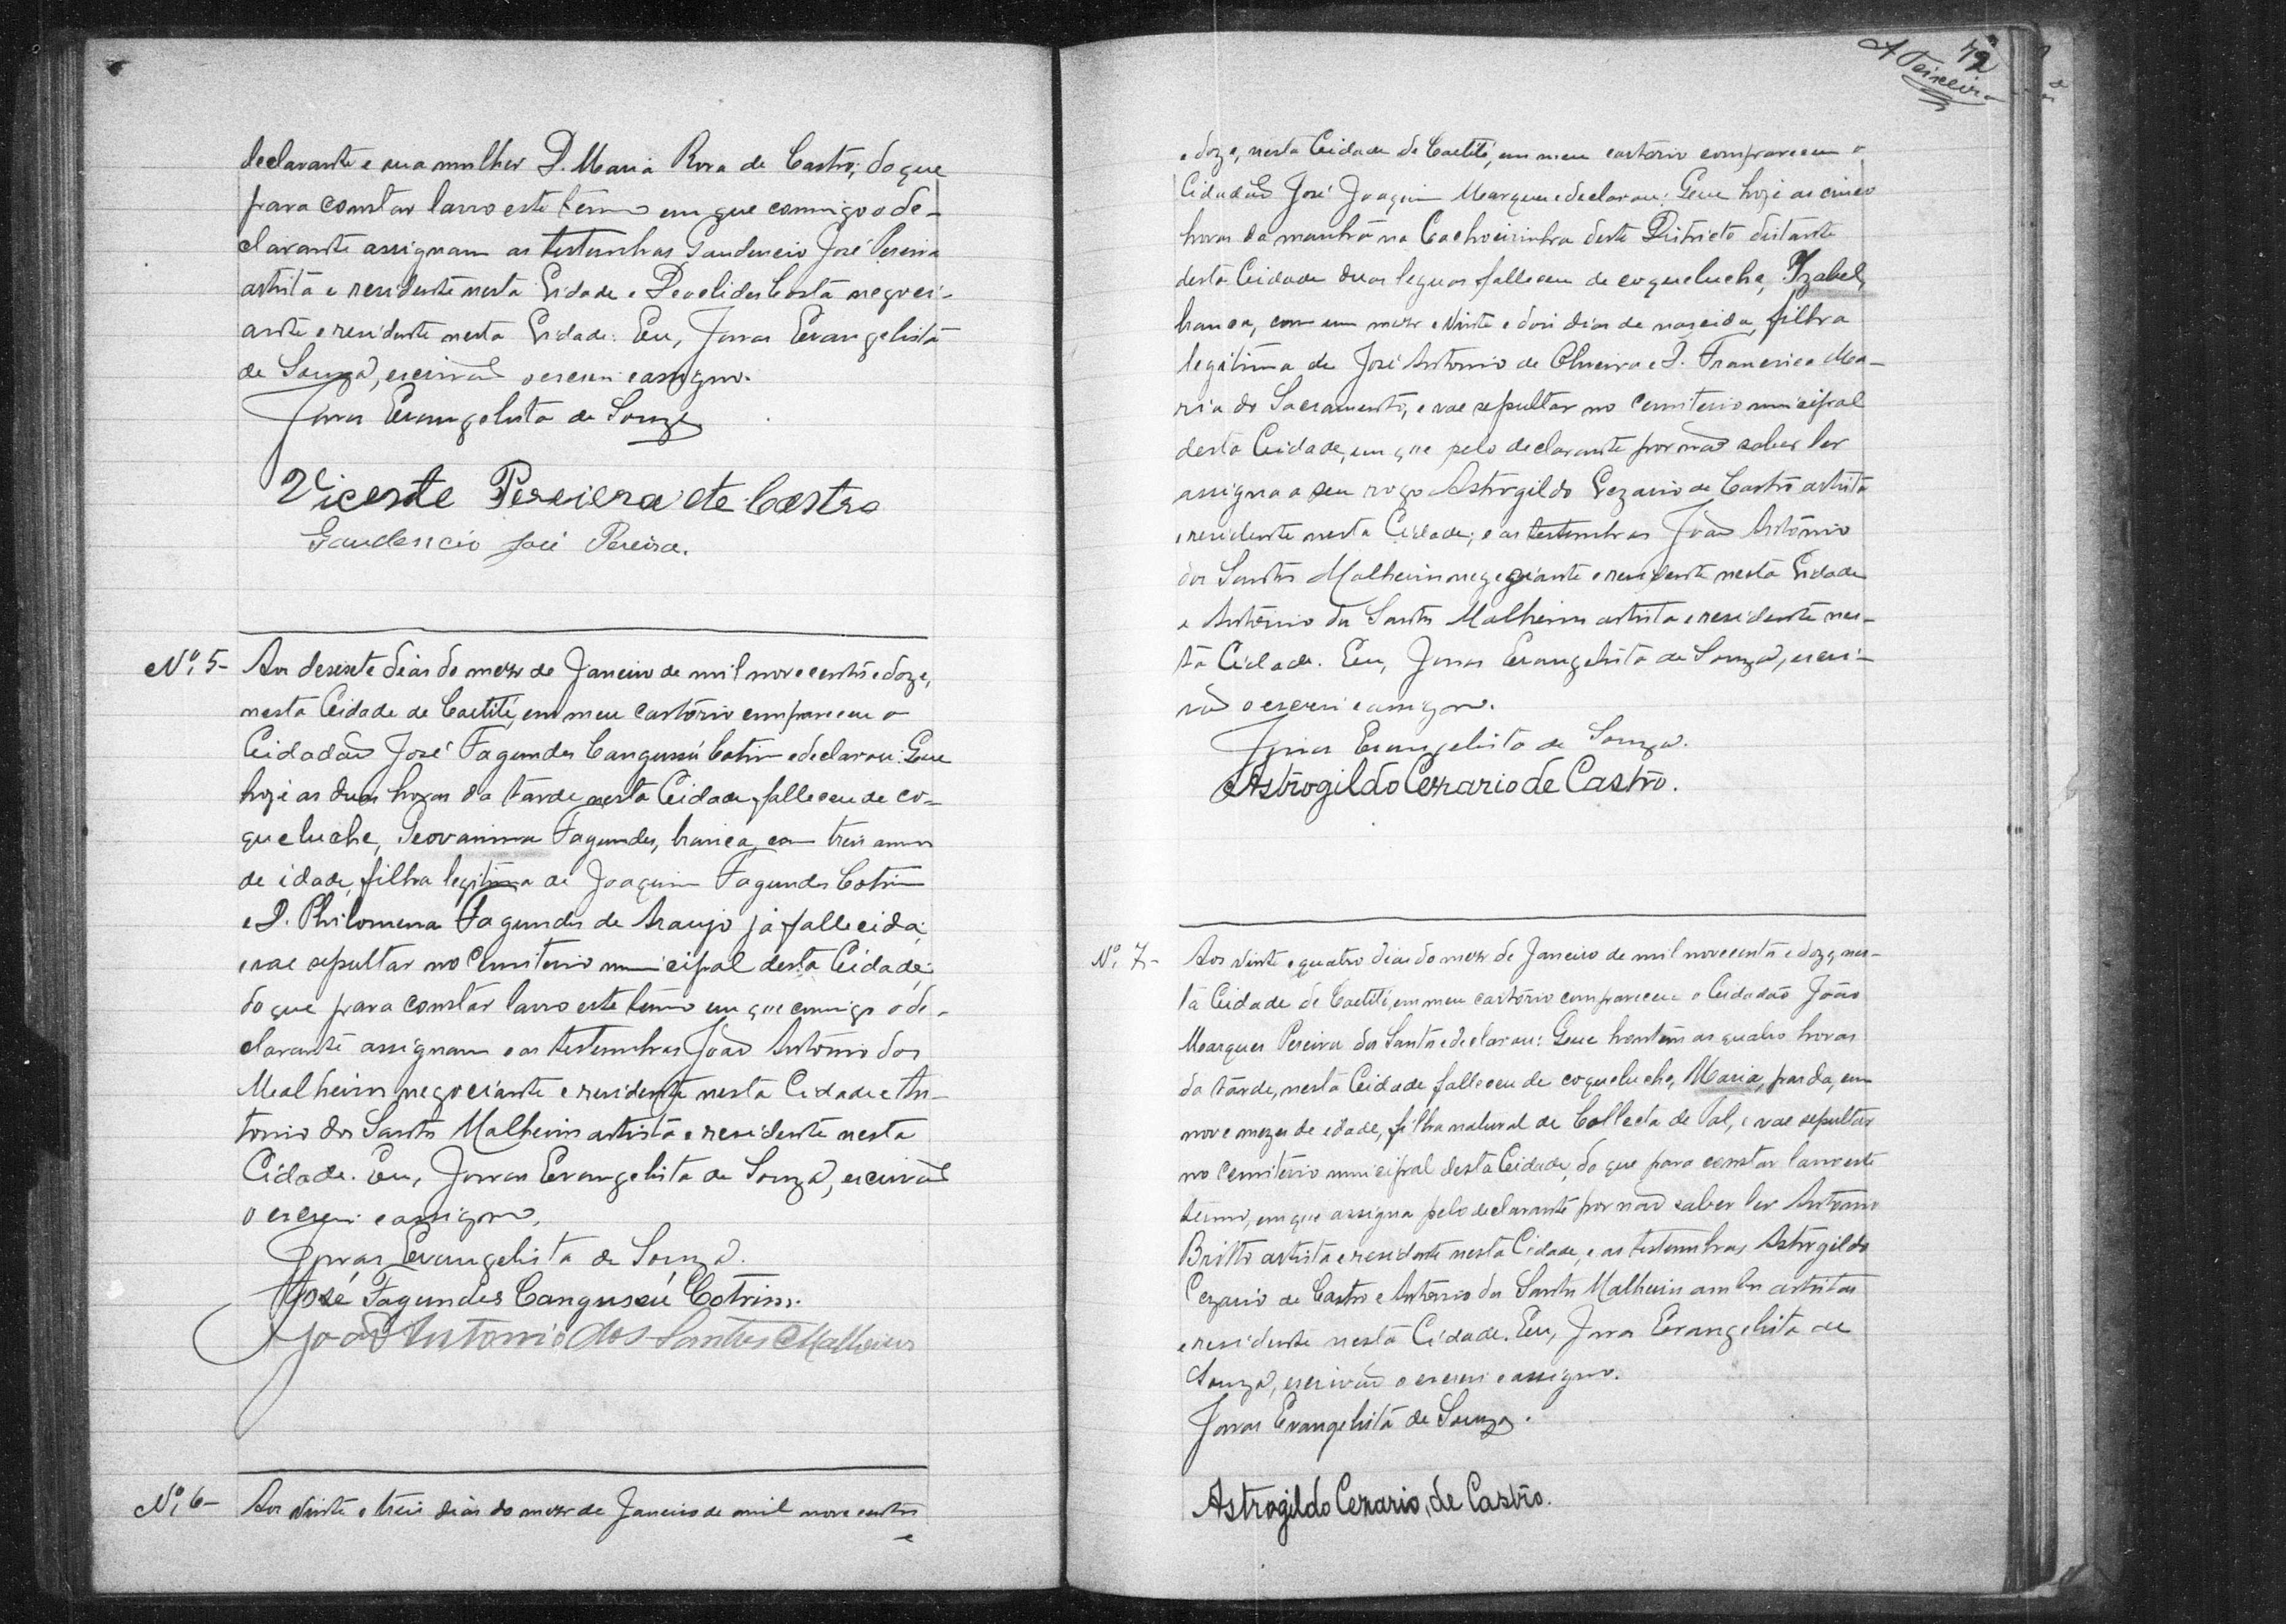 declarante e sua mulher D. Maria Rosa de Castro; do que
para constar lavro este termo em que commigo o de-
clarante assignam as testemunhas Gaudencio José Pereira
artista e residente nesta Cidade e Deoclides Costa negoci-
ante e residente nesta Cidade. Eu, Jonas Evangelista
de Souza, escrivão o escrevi e assigno.
Jonas Evangelista de Souza
Vicente Pereira de Castro
Gaudencio José Pereira.
Nº 5- Aos desesete dias do mez de Janeiro de mil novecentos e doze,
nesta Cidade de Caetité, em meu cartório compareceu o
Cidadão José Fagundes Cangussú Cotrim e declarou: Que
hoje as duas horas da tarde nesta Cidade, falleceu de co-
queluche, Geovanina Fagundes, branca, com treis annos
de idade, filha legitima de Joaquim Fagundes Cotrim
e D. Philomena Fagundes de Araujo já fallecida;
e vae sepultar no Cemiterio municipal desta Cidade;
do que para constar lavro este termo em que commigo o de-
clarante assignam e as testemunhas João Antonio dos
Malheiros negociante e residente nesta Cidade e An-
tonio dos Santos Malheiros artista e residente nesta
Cidade. Eu, Jonas Evangelista de Souza, escrivão
o escrevi e assigno.
Jonas Evangelista de Souza.
José Fagundes Cangussú Cotrim.
João Antonio dos Santos Malheiros
Nº 6- Aos vinte e treis dias do mez de Janeiro de mil novecentos
e
72
A Teixeira
e doze, nesta Cidade de Caetité, em meu cartório compareceu o
Cidadão José Joaquim Marques e declarou: Que hoje as cinco
horas da manhã na Cachoeirinha deste Districto distante
desta Cidade duas leguas falleceu de coqueluche, Izabel,
branca, com um mez e vinte e dois dias de nascida, filha
legitima de José Antonio de Oliveira e D. Francisca Ma-
ria do Sacramento, e vae sepultar no Cemiterio municipal
desta Cidade, em que pelo declarante por não saber ler
assigna a seu rogo Astrogildo Cezario de Castro artista
e residente nesta Cidade; e as testemunhas João Antônio
dos Santos Malheiros negociante e residente nesta Cidade
e Antônio dos Santos Malheiros artista e residente nes-
ta Cidade. Eu, Jonas Evangelista de Souza, escri-
vão o escrevi e assigno.
Jonas Evangelista de Souza.
Astrogildo Cezario de Castro.
Nº 7- Aos vinte e quatro dias do mez de Janeiro de mil novecentos e doze, nes-
ta Cidade de Caetité, em meu cartório compareceu o Cidadão João
Marques Pereira dos Santos e declarou: Que hontem as quatro horas
da tarde, nesta Cidade falleceu de coqueluche, Maria, parda, com
nove mezes de edade, filha natural de Collecta de Tal, e vae sepultar
no Cemitério municipal desta Cidade, do que para constar lavro este
termo, em que assigna pelo declarante por não saber ler Antonio
Britto artista e residente nesta Cidade, e as testemunhas Astrogildo
Cezario de Castro e Antonio dos Santos Malheiros ambos artistas
e residente nesta Cidade. Eu, Jonas Evangelista de
Souza, escrivão o escrevi e assigno.
Jonas Evangelista de Souza.
Astrogildo Cezario, de Castro.